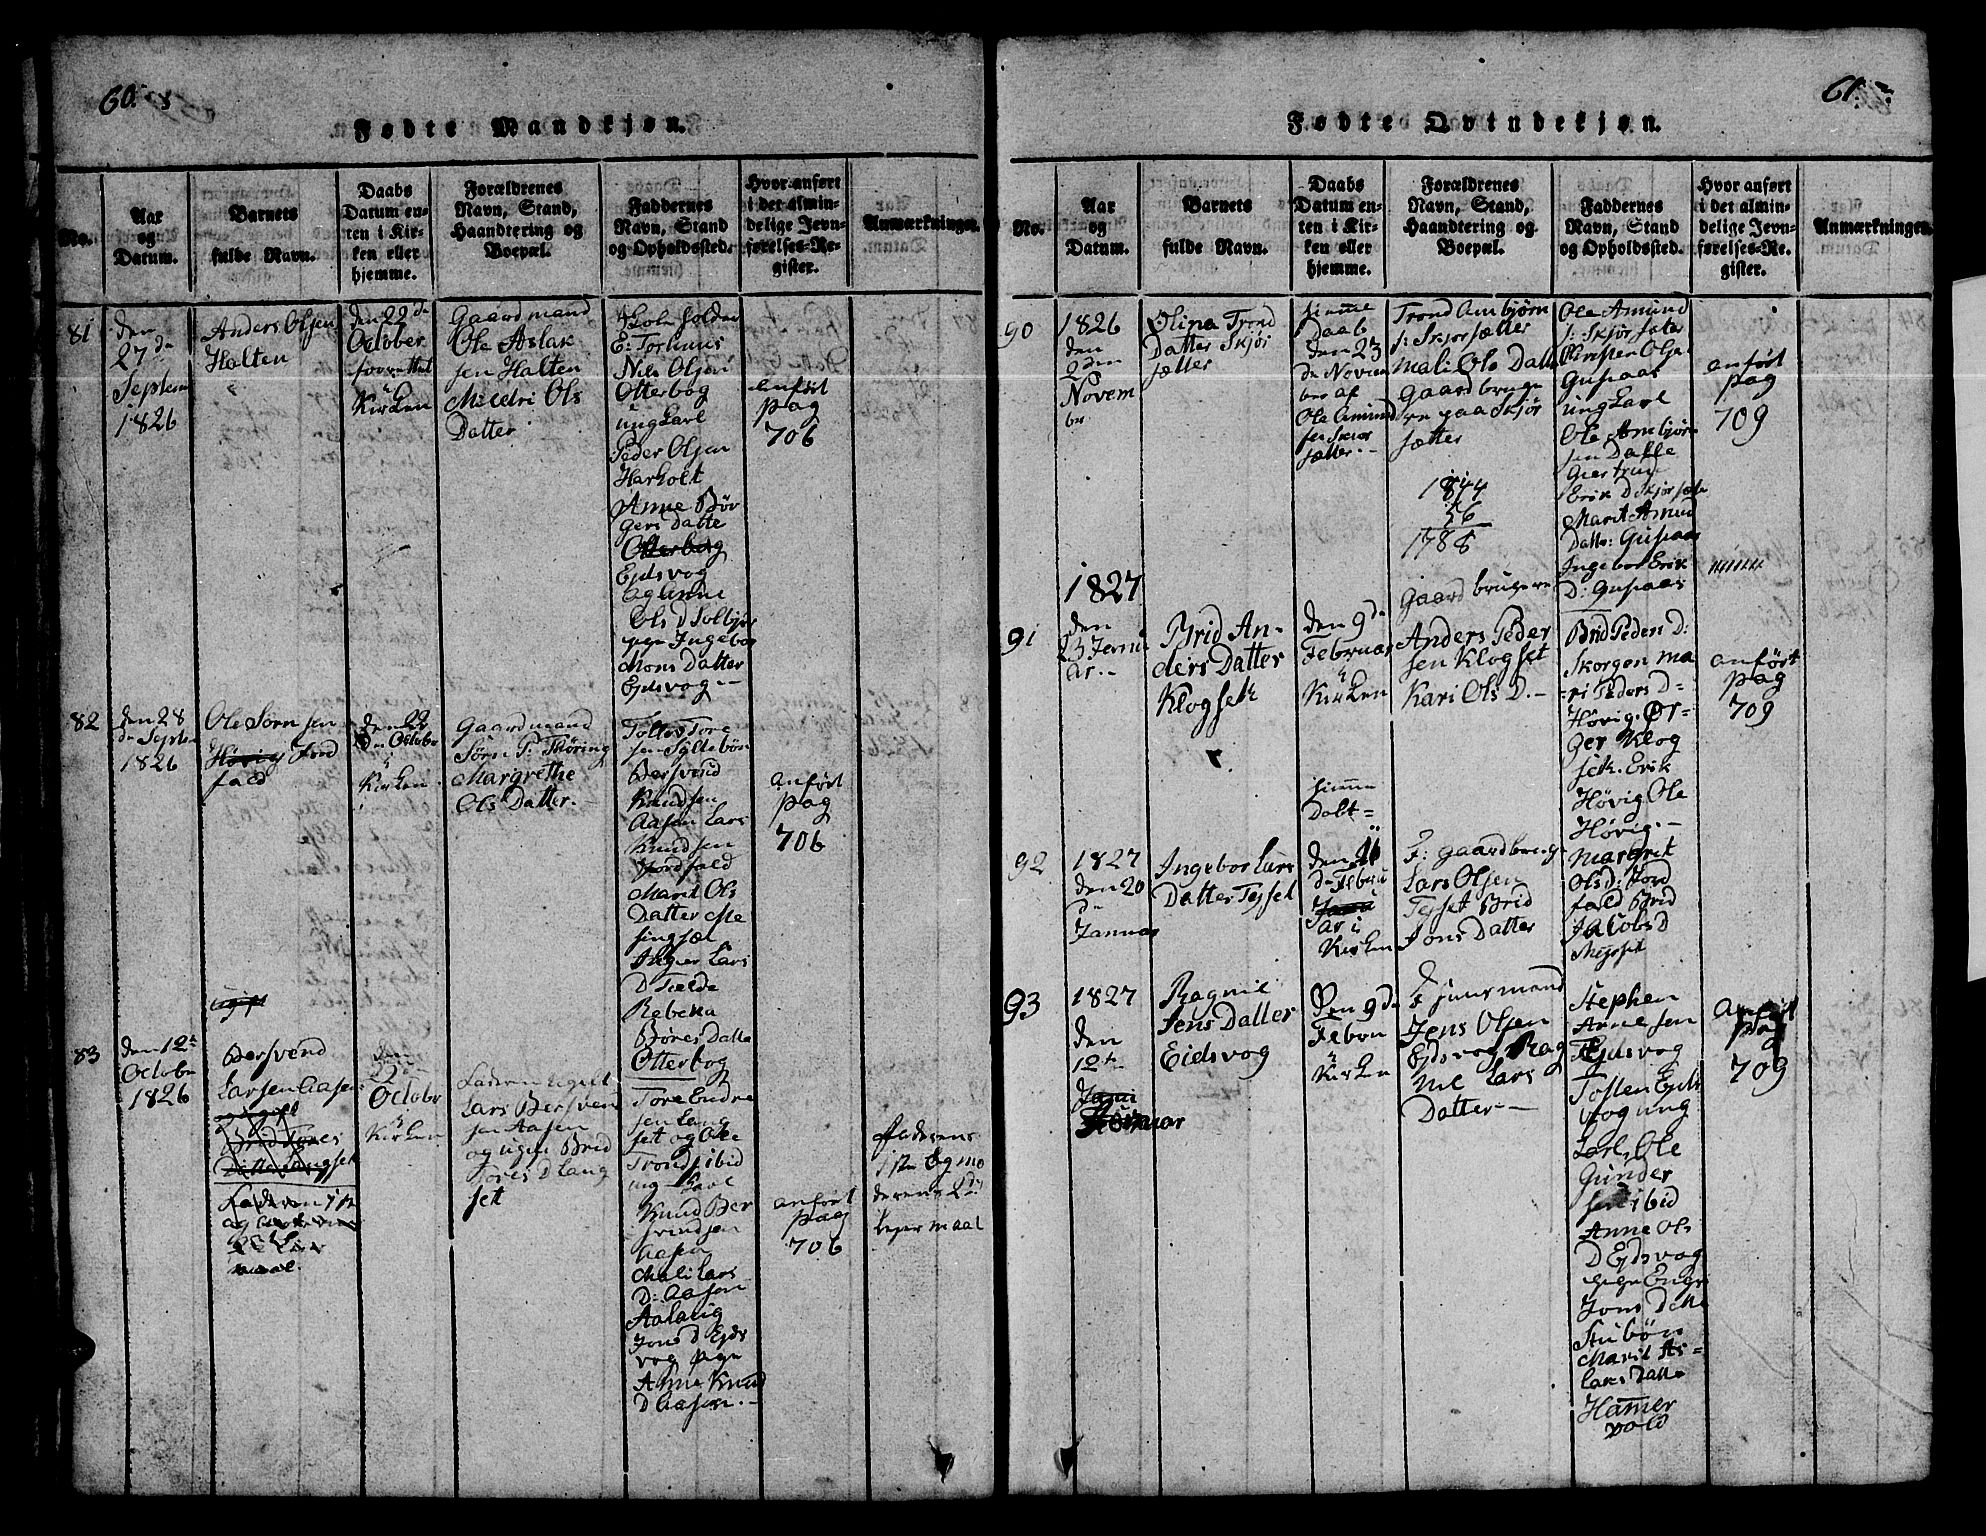 60.
Fødte Mandkjøn.
No.
Aar
og
Datum.
Barnets
fulde Navn.
Daabs
Datum en-
ten i Kir-
ken eller
hjemme.
Forældrenes
Navn, Stand,
Haandtering og
Boepæl.
Faddernes
Navn, Stand
og Opholdssted.
Hvor anført
i det almin-
delige Jevn-
førelses-Re-
gister.
Anmærkninger.
81
den
27de
Septem
1826
Anders Olsen
Halten
den 22de
October
forrettet
i
Kirken
Gaardmand
Ole Aslak
sen Halten
Ols
Datter
Nils Olsen
Otterbog
ung Karl
Peder Olsen
Harholt
Anne Bør
gers Datte
Otterbog
Ejdsvog
og Anne
Ols D Solbjør
pige Ingebor
Mons Datter
Ejdsvog.-
anført
pag
706
82
den 28
de Septem
1826
Ole Sørn sen
Høvig Jord
fald
den 22
de Octobr
i
Kirken.
Gaardmand
Sørn P. Thøring
Margrethe
Ols Datter.-
Tolles Tore
sen Syltebøn
Bersvend
Knudsen
Aasen Lars
Knudsen
Jordfald
Marit Ols
Datter Me
singsæt
Inger Lars
D Tielde
Rebeka
Børes Datte
Otterbog
anført
pag
706
ugift
83
den 12te
October
1826
Bersvend
Larsen Aasen
Brid Tores
Datter Langset
Faderen 1ste
den
22
Octobr
i
Kirken
Lars Bersven
sen Aasen
og ugivt Brid
Tores D Lang
set
Tore Endre
sen Lang
set og Ole
Trondsibid
ung Karl
Knud Ber
svendsen
Aasen
Mali Lars
D: Aasen
Aalaug
Jons D Ejds
vog pige
Anne Knud
D Aasen.-
anført
pag
706
Faderens
1ste og mo
derens 2det
lejermaal
61.
Fødte Qvindekjøn.
No.
Aar
og
Datum.
Barnets
fulde Navn.
Daabs
Datum en-
ten i Kir-
ken eller
hjemme.
Forældrenes
Navn, Stand,
Haandtering og
Boepæl.
Faddernes
Navn, Stand
og Opholdssted.
Hvor anført
i det almin-
delige Jevn-
førelses-Re-
gister.
Anmærkninger.
90
1826
den
2den
Novem
br
Olina Trond
Datter Skjør
sætter
hjeme
Daab
den 23
de Novem
ber af
Ole Amund
sen Skjør
sætter.-
Trond Ambjørn
s: Skjørsætter
Mali Ols Datt
Gaardbruge
re paa Skjør
sætter
1844
56
1788
Ole Amund
s: Skjørseter
Christen Olse
Gusiaas
ung Karl
Ole Ambjørn
sen Dahle
Giertrud
Erik D Skjørsæte
Marit Amund
Datte: Gusiaas
Ingebor Erik
D: Gusiaas
anført
pag
709
91
1827
den
23 Janu
ar.-
Brid An-
ders Datter
Klogsek
den 9de
Februar
i
Kirken
Gaardbrugere
Anders Peder
sen Klogset
Kari Ols D.-
Brid Peders D:
Skorgen Ma
ri Peders D=
Høvig. Ør-
ger Klog
sek. Erik
Høvig Ole
Høvig.-
anført
pag
709
92
1827
den 20
de
Januar
Ingebor Lars
Datter Tejset
hjeme
Døbt=
den 11
de Febru
ar i
Kirken
F: gaardbrug
Lars Olsen
Tejset Brid
Jons Datter
Margrit
Ols d: Jord
fald Brid
Jacobs D
93
1827
den
12te
Januar
Ragnil
Jens Datter
Eidsvog
Den 9de
Februa
i
Kirken
F Huusmand
Jens Olsen
Ejdsvog Rag
nil Lars
Datter-
Stephen
Arnesen
Ejdsvog
Tosten Ejds
vog ung
Karl, Ole
Gunder
sen ibid
Anne Ols
D Ejdsvog
pige Engri
Jons Datte
Stubøn
Marit As-
laks Datte
Hamer
vold
Anført
pag
709